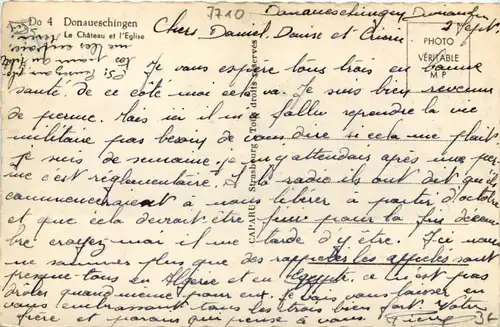 7710
Donaueschingen Dimanche
2 Sept.
Do 4 Donaueschingen
Le Château et l'Eglise
Chers Daniel, Denise et
PHOTO
VÉRITABLE
M P
CAP Strasbourg Tous droits réservés
Je vous espère tous trois en bonne
santé, de ce côté moi cela va. Je suis bien revenu
de perme. Mais ici il m'a fallu reprendre la vie
militaire pas besoin de vous dire si cela me plaît
je suis de semaine, je m'y attendais après une per
me c'est réglementaire. A la radio ils ont dit qu'ils
commenceraient à nous libérer à partir d'octobre
et que cela devrait être fini pour la fin décem
bre croyez-moi il me tarde d'y être. Ici nous
ne sommes plus que des rappelés les appelés sont
presque tous en Algérie et en ce n'est pas
drôles quand même pour eux. Je vais vous laisser en
vous embrassant tous les trois bien fort Votre
frère et parrain qui pense à vous. Pierre